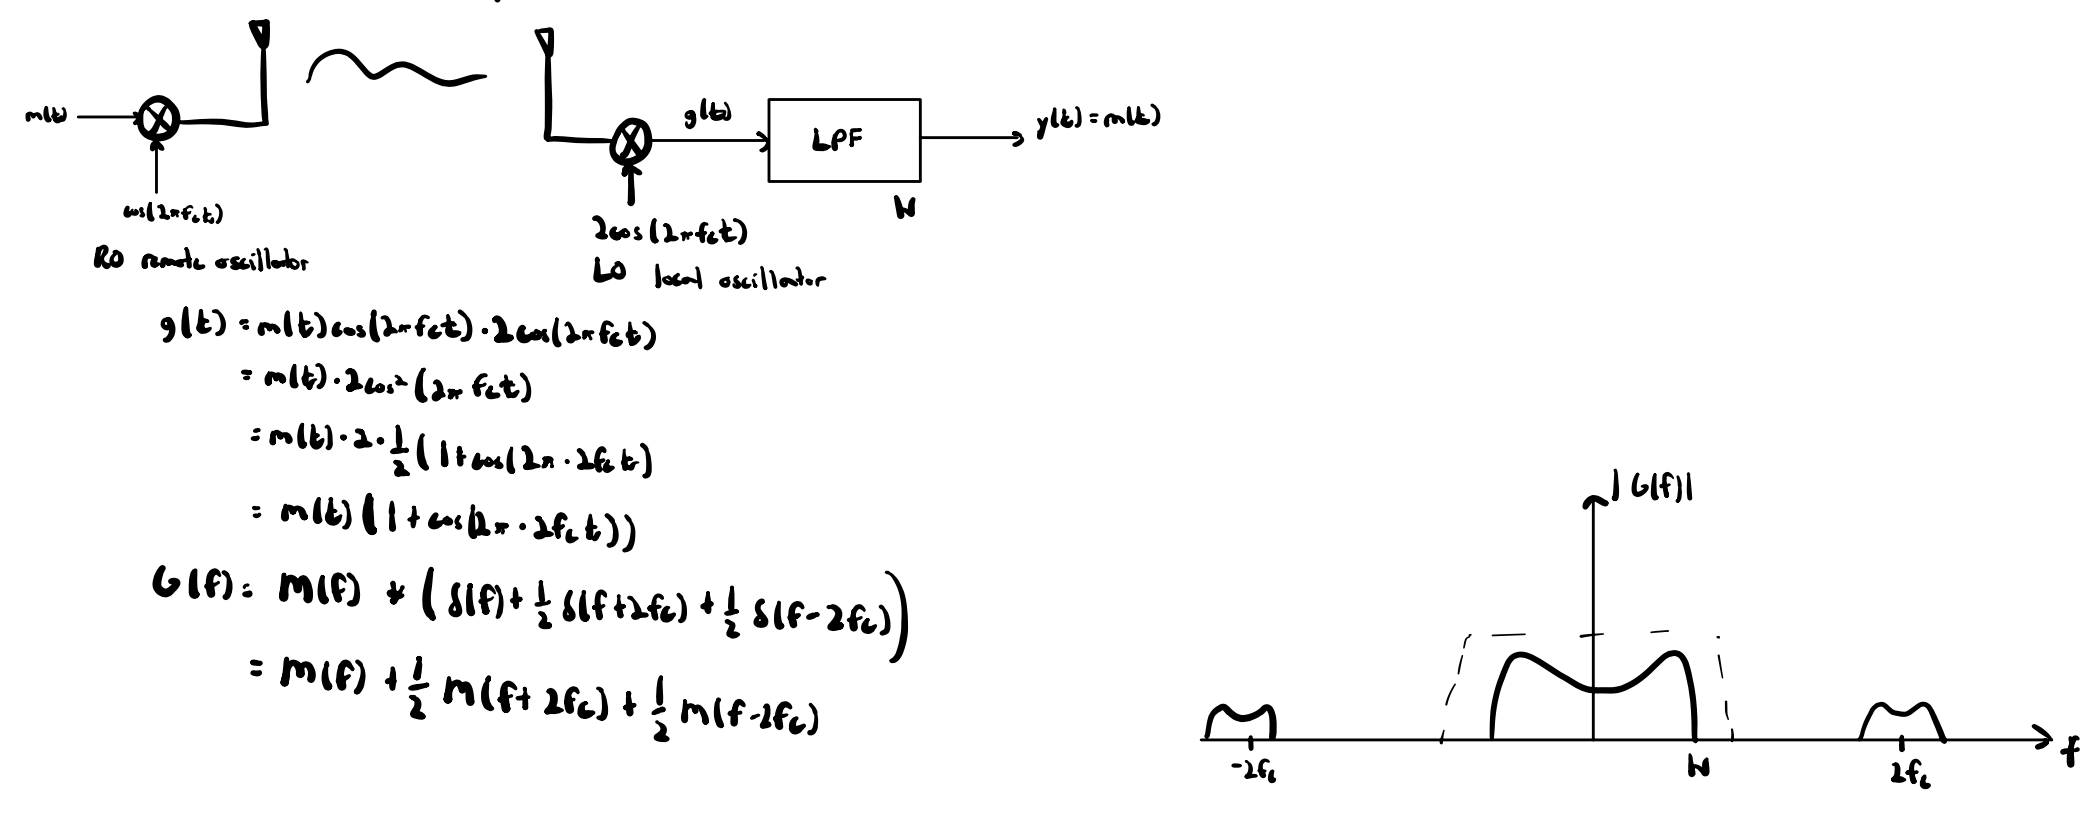 m(t)
g(t)
LPF
y(t) = m(t)
W
cos(2πf_ct)
RO remote oscillator
2cos(2πf_ct)
LO local oscillator
g(t) = m(t)cos(2πf_ct)·2cos(2πf_ct)
= m(t)·2cos²(2πf_ct)
= m(t)·2·1/2(1+cos(2π·2f_ct)
= m(t)(1+cos(2π·2f_ct))
G(f) = M(f) * (δ(f) + 1/2 δ(f+2f_c) + 1/2 δ(f-2f_c))
= M(f) + 1/2 M(f+2f_c) + 1/2 M(f-2f_c)
|G(f)|
-2f_c
W
2f_c
f